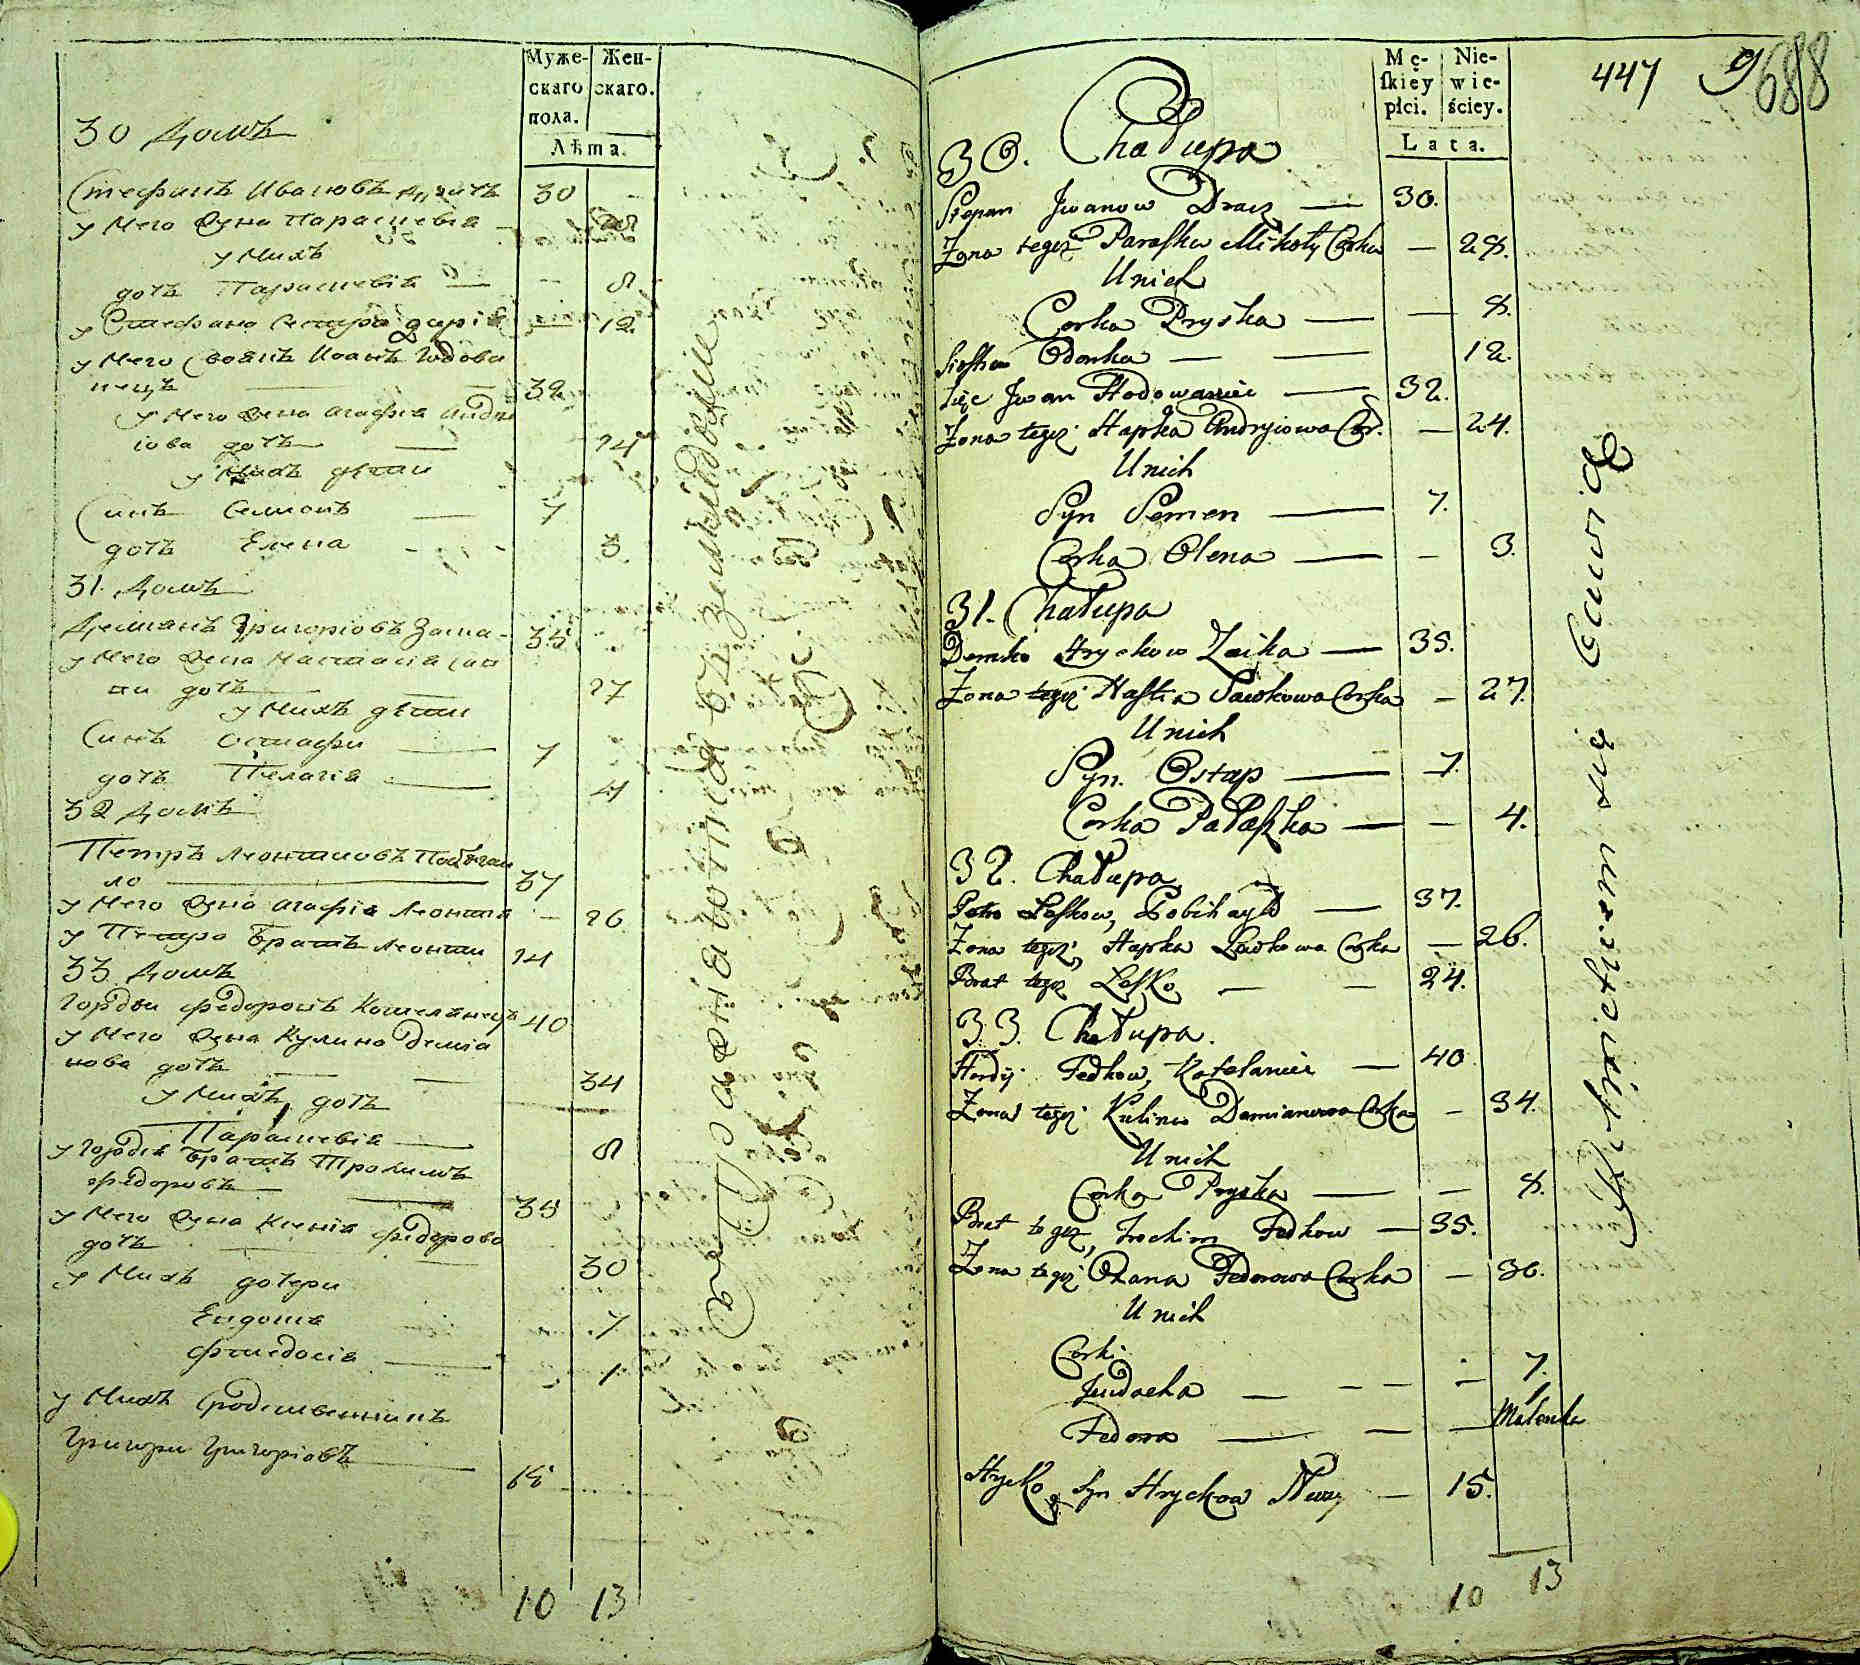 Муже-
скаго
пола.
Жен-
скаго.
Лѣта.
30 Домъ
Стефанъ Ивановъ 30
у Него Жена Парасцевіа 28
у Нихъ
дочь Парасцевіа — 8
у Стефана Сестра Даріа — 12
у Него Своякъ Иоанъ Годова
нецъ 32
у Него Жена Агафіа Андрі
іова дочь 24
у Нихъ дѣти
Синъ Семионъ — 7
дочь Елена 3.
31 Домъ
Демианъ Григоріовъ Заика 35
у Него Жена Настасіа Сав
ки дочь 27
у Нихъ дѣти
Синъ Остафи — 7
дочь Пелагіа — 4
32 Домъ
Петръ Леонтиовъ Побѣгай
ло 37
у Него Жена Агафіа Леонтіа — 26
у Петра Братъ Леонти 24
33 Домъ
Гордеи Федоровъ Котеланецъ 40
у Него Жена Кулина Деміа
нова дочь 34
у Нихъ дочь
Парасцевіа — 8
у Гордеа Братъ Трохимъ
Федоровъ 35
у Него Жена Ксеніа Федорова
дочь 30
у Нихъ дочери
Евдокіа 7
Феодосіа — 1
у Нихъ Сродственникъ
Григори Григоріовъ 15
10 13
447 688
Mę-
ſkiey
płci.
Nie-
wie-
ściey.
Lata.
30. Chałupa
Stepan Jwanow Dracz — 30.
Zona tegoż Paraſka Mikoły Corka — 28.
U nich
Corka Pryska — — 8.
Siostra Odarka — — 12.
Zięc Jwan Hodowaniec — 32.
Zona tegoż Hapka Andryiowa Cor. — 24.
U nich
Syn Semen — 7.
Corka Olena — — 3.
31. Chałupa
Demko Hryckow Zaika — 35.
Zona tegoż Naſtia Sawkowa Corka — 27.
U nich
Syn Ostap — 7.
Corka Pałaszka — — 4.
32. Chałupa
Petro Leſkow, Pobihayło — 37.
Zona tegoż, Hapka Lewkowa Corka — 26.
Brat tegoż Leſko — — 24.
33. Chałupa.
Hordij Fedkow, Kotelaniec — 40
Zona tegoż Kulina Damianowa Corka — 34.
U nich
Corka Pryska — — 8.
Brat tegoż, Trochim Fedkow — 35.
Zona tegoż Oxana Fedorowa Corka — 30.
U nich
Corki
Jewdocha — — — 7.
Fedora — — — Maleńka
Hrycko, Syn Hryckow — 15.
10 13